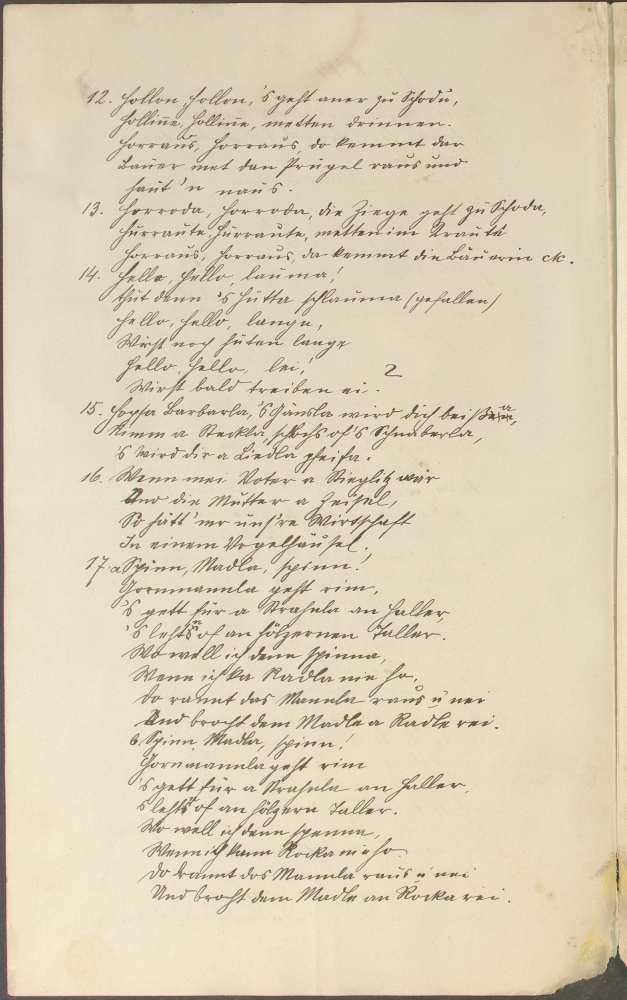 12. Hollon, hollon, 's geht aner zu Schodu,
Hollinne, hollinne, metten drinnen.
Horraus, horraus, do kemmt dar
Bauer met dan Prügel raus und
haut 'n naus.
13. Horroda, horroda, die Ziege geht zu Schoda,
Hurraute, hurraute, metten im Kraute
Horraus, horraus, da kemmt die Bäuerin etc.
14. Hello, hello, lauma!
thut denn 's Hütta schlauma (gefallen)
Hello, hello, lange,
Wirst noch hüten lange
Hello, hello, lei!
2
Wirst bald treiben ei.
15. Hopsa Barbarla, 's Gänsla wird dich beißa,
Nimm a Steckla, schlochs of's Schnaberla,
's wird dir a Liedla pfeifa.
16. Wenn mei Voter a Stieglitz wär
Und die Mutter a Zeisel,
So hätt' mr uns're Wirtschaft
In einem Vogelhäusel.
17. a Spinn, Madla, spinn!
Gornmannla geht rim,
's gett für a Strahnla an Haller,
's lehts of an hölzernen Taller.
Wo well ich denn spinna,
Wenn ich ka Radla nie ho.
Do rannt das Mannla raus u nei
Und brocht dem Madle a Radle rei.
b Spinn, Madla, spinn!
Gornmannla geht rim
's gett für a Strahnla an Haller,
's lehts of an hölzern Taller.
Wo well ich denn spenna,
Wenn ich kann Rocka nie ho
Do rannt dos Mannla raus u nei
Und brocht dem Madle an Rocka rei.